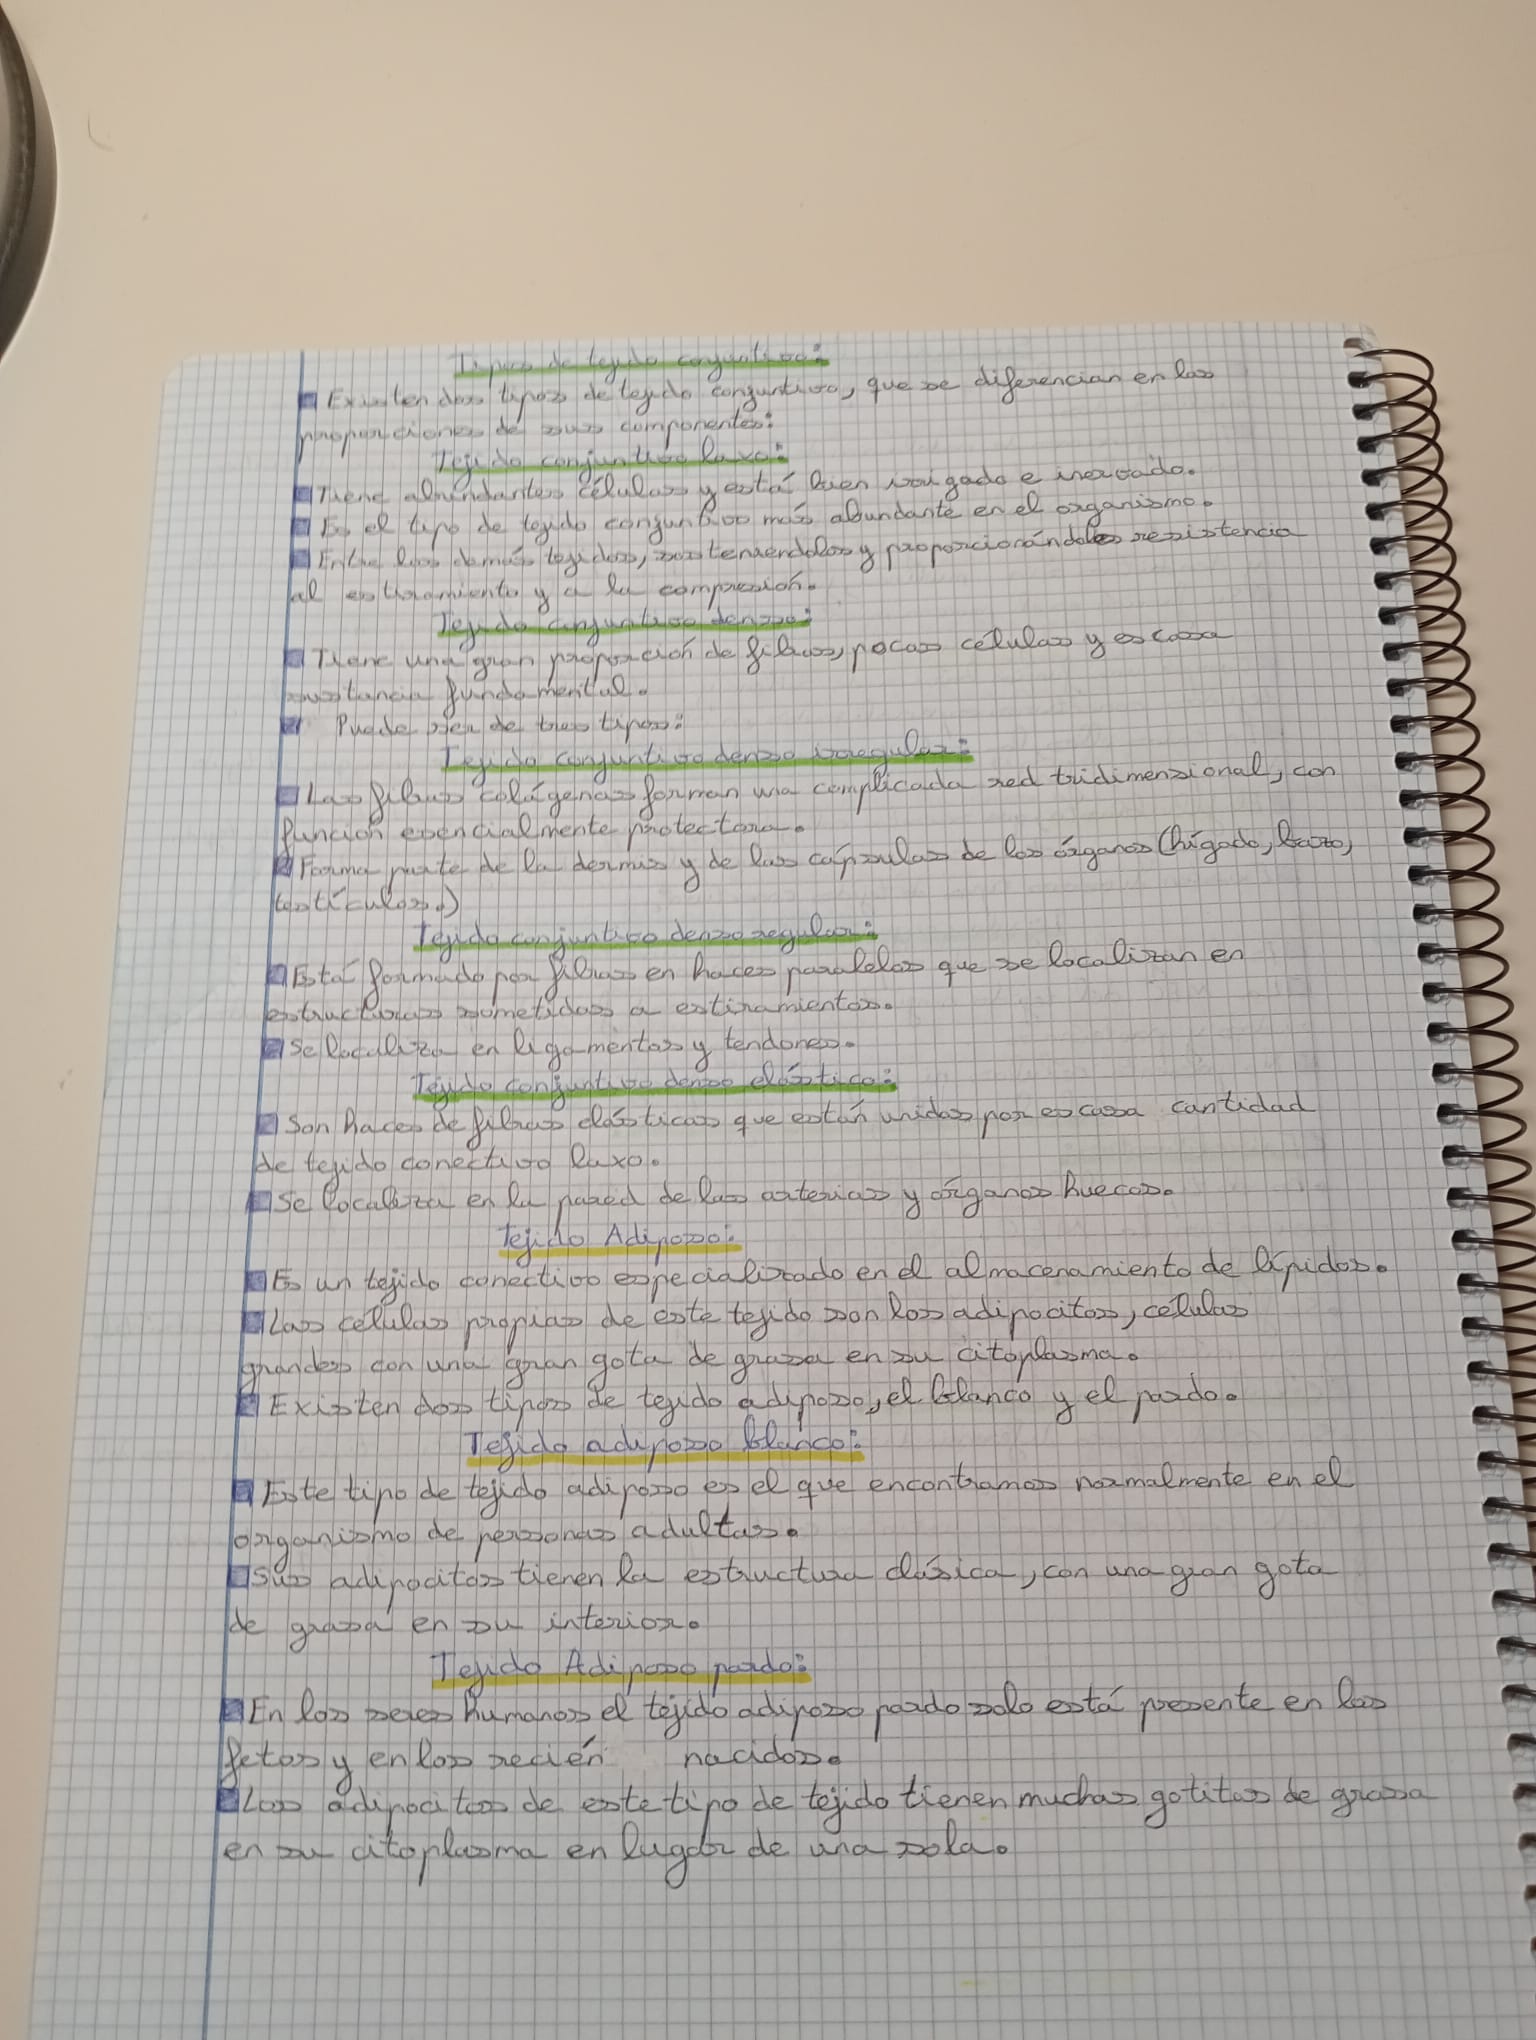 Tipos de tejido conjuntivo:
Existen dos tipos de tejido conjuntivo, que se diferencian en las
proporciones de sus componentes:
Tejido conjuntivo laxo:
Tiene abundantes células y está buen irrigado e inervado.
Es el tipo de tejido conjuntivo más abundante en el organismo.
Entre los demás tejidos, sosteniendolos y proporcionándoles resistencia
al estiramiento y a la compresión.
Tejido conjuntivo denso:
Tiene una gran proporción de fibras, pocas células y escasa
sustancia fundamental.
Puede ser de tres tipos:
Tejido conjuntivo denso irregular:
Las fibras colágenas forman una complicada red tridimensional, con
función esencialmente protectora.
Forma parte de la dermis y de las cápsulas de los órganos (hígado, bazo,
testículos.)
Tejido conjuntivo denso regular:
Está formado por fibras en haces paralelos que se localizan en
estructuras sometidas a estiramientos.
Se localiza en ligamentos y tendones.
Tejido conjuntivo denso elástico:
Son haces de fibras elásticas que están unidas por escasa cantidad
de tejido conectivo laxo.
Se localiza en la pared de las arterias y órganos huecos.
Tejido Adiposo:
Es un tejido conectivo especializado en el almacenamiento de lípidos.
Las células propias de este tejido son los adipocitos, células
grandes con una gran gota de grasa en su citoplasma.
Existen dos tipos de tejido adiposo, el blanco y el pardo.
Tejido adiposo blanco:
Este tipo de tejido adiposo es el que encontramos normalmente en el
organismo de personas adultas.
Sus adipocitos tienen la estructura clásica, con una gran gota
de grasa en su interior.
Tejido Adiposo pardo:
En los seres humanos el tejido adiposo pardo solo está presente en los
fetos y en los recién nacidos.
Los adipocitos de este tipo de tejido tienen muchas gotitas de grasa
en su citoplasma en lugar de una sola.